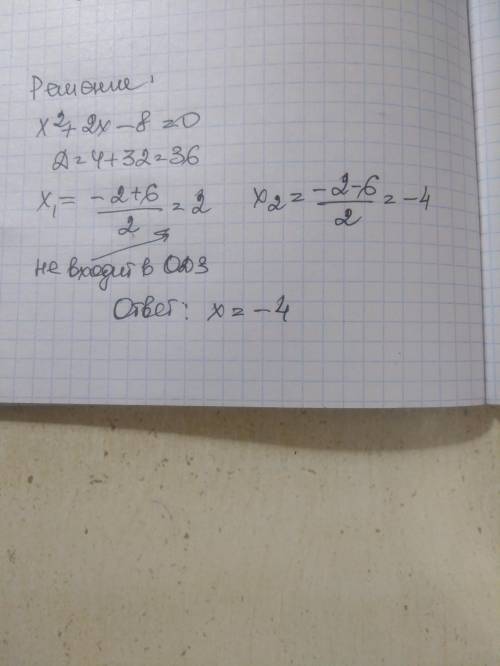 Решение:
x²+2x-8=0
D=4+32=36
x₁= (-2+6)/2 = 2 x₂= (-2-6)/2 = -4
не входит в ОДЗ
Ответ: x=-4